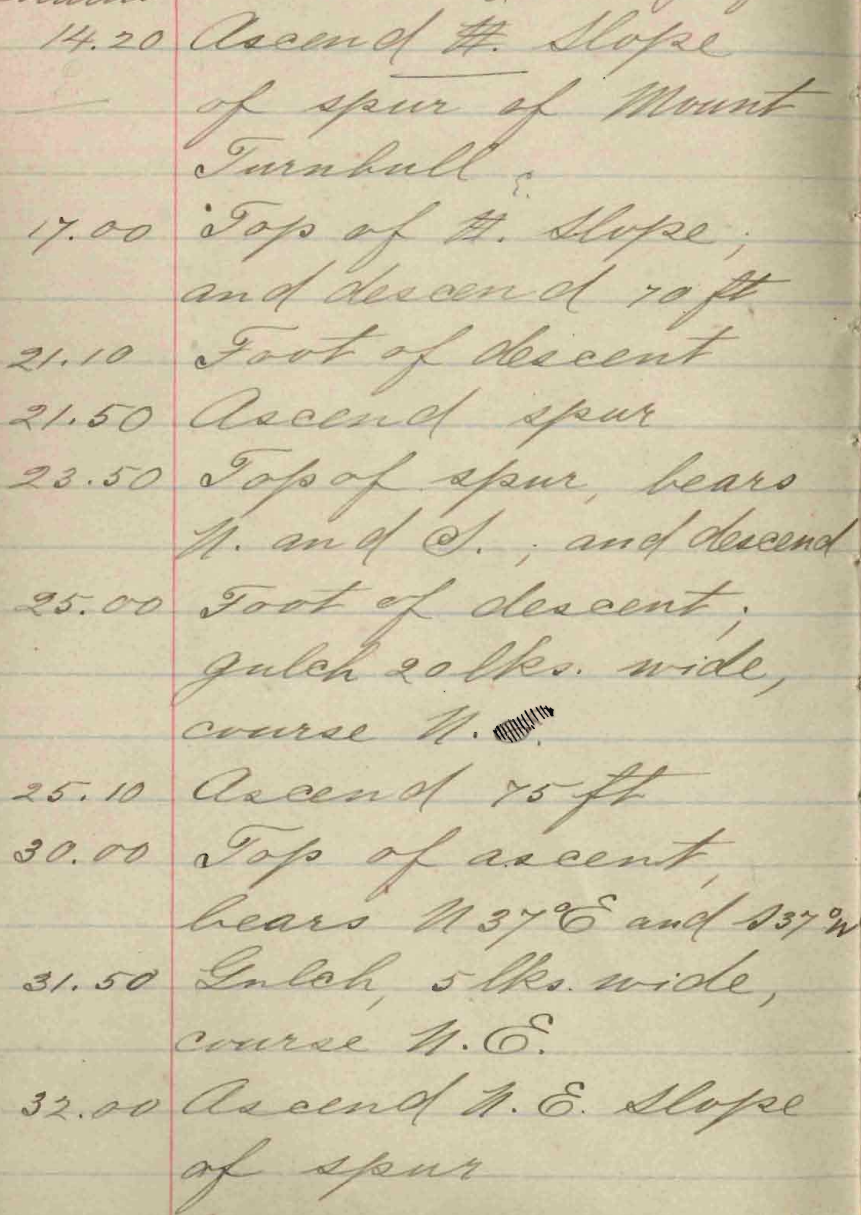 14.20 Ascend Slope
of spur of Mount
Turnbull
E.
17.00 Top of Slope;
and descend 70 ft
21.10 Foot of descent
21.50 Ascend spur
23.50 Top of spur, bears
N. and S. ; and descend
25.00 Foot of descent;
gulch 20 lks. wide,
course N.
25.10 Ascend 75 ft
30.00 Top of ascent,
bears N37°E and S37°W
31.50 Gulch, 5 lks. wide,
course N.E.
32.00 Ascend N.E. Slope
of spur